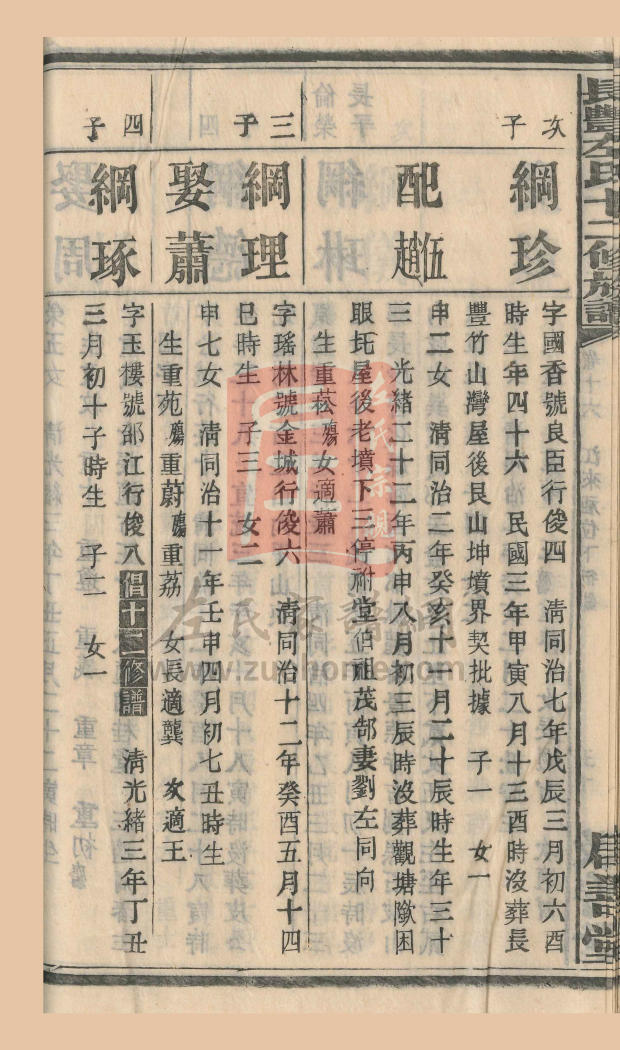 長豐左氏十二修族譜 卷十六
次子
綱珍
字國香號良臣行俊四 清同治七年戊辰三月初六酉
時生年四十六 民國三年甲寅八月十三酉時沒葬長
豐竹山灣屋後艮山坤墳界契批據 子一 女一
配伍趙
申二女 清同治二年癸亥十一月二十辰時生年三十
三 光緒二十二年丙申八月初三辰時沒葬觀塘隊困
眼坵屋後老墳下三停祔堂伯祖茂郜妻劉左同向
生重菘殤女適蕭
三子
綱理
字瑤林號金城行俊六 清同治十二年癸酉五月十四
巳時生 子三 女二
娶蕭
申七女 清同治十一年壬申四月初七丑時生
生重苑殤重蔚殤重荔 女長適龔 次適王
四子
綱琢
字玉樓號邵江行俊八 倡十二修譜 清光緒三年丁丑
三月初十子時生 子二 女一
左氏宗親
左氏家譜網
www.zuophome.com